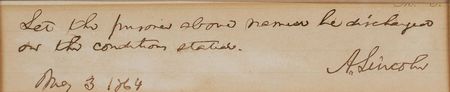 Let the prisoner above named be discharged
on the conditions stated.
A. Lincoln
May 3 1864